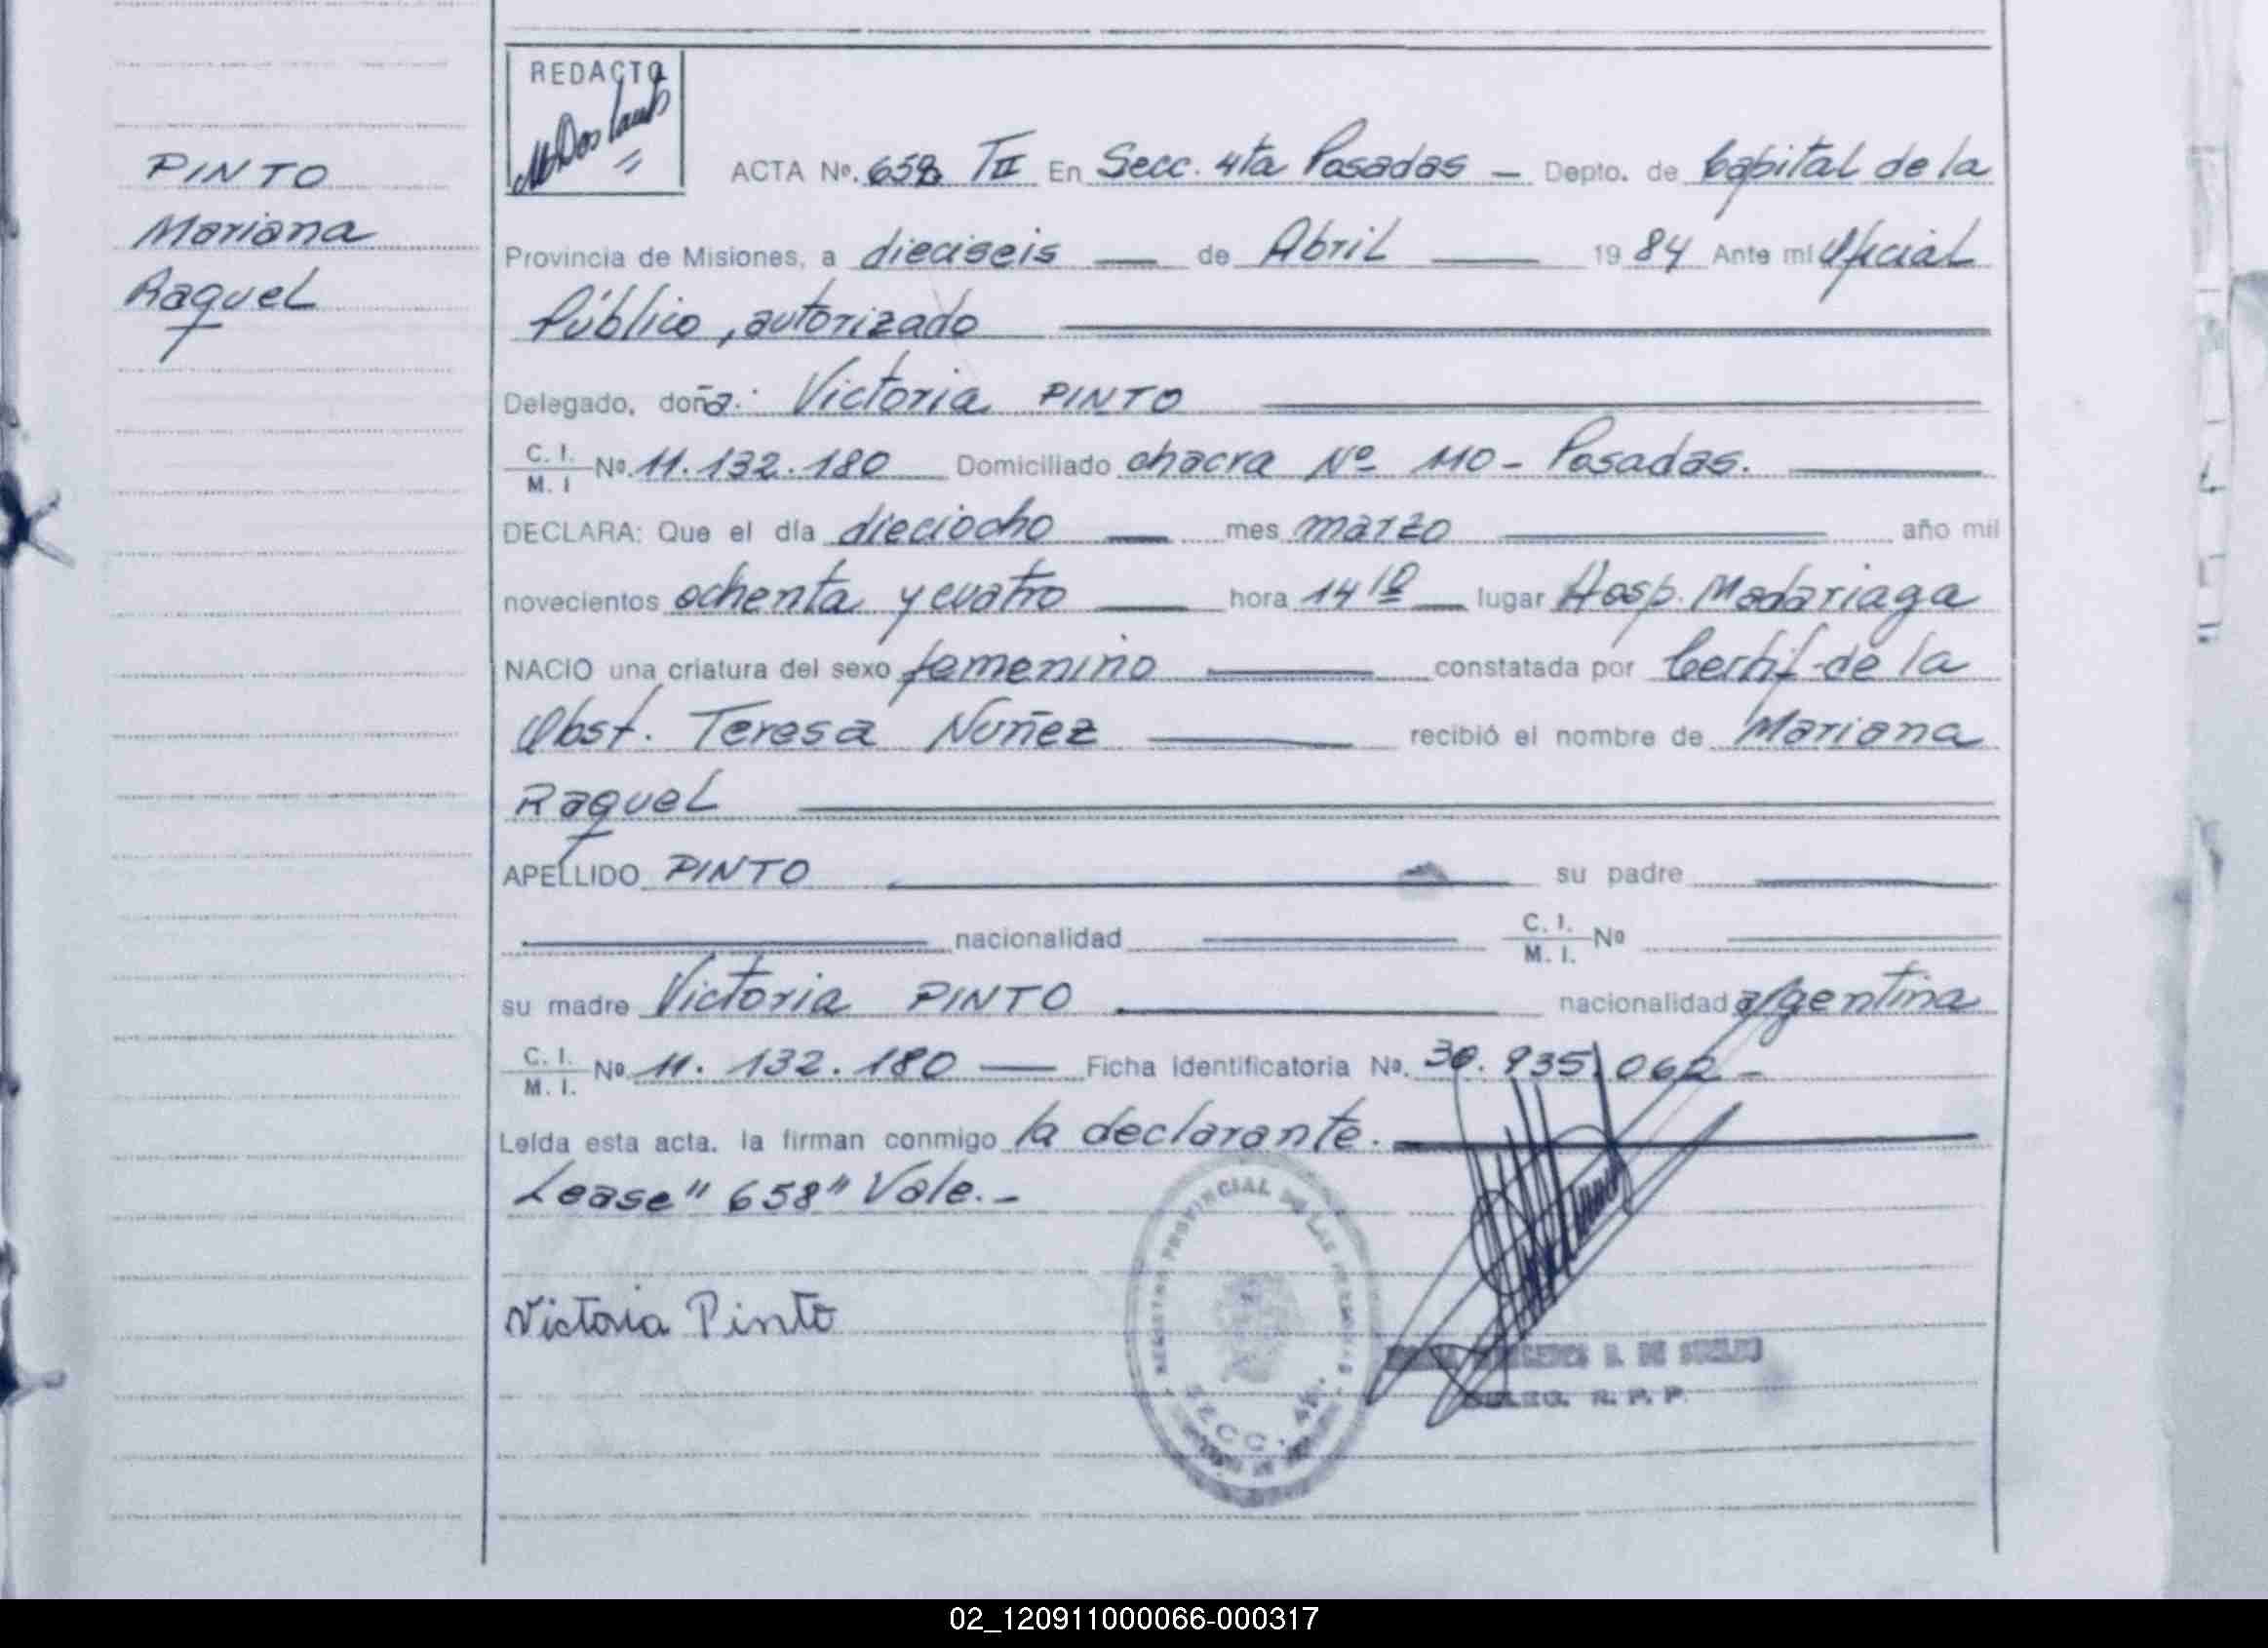 REDACTO
PINTO
Mariana
Raquel
ACTA Nº. 658 TII En Secc. 4ta Posadas — Depto. de Capital de la
Provincia de Misiones, a dieciseis — de Abril — 1984 Ante mi Oficial
Público, autorizado
Delegado, doña: Victoria PINTO
C. I. / M. I Nº. 11.132.180 Domiciliado chacra Nº 110 - Posadas.
DECLARA: Que el día dieciocho — mes marzo — año mil
novecientos ochenta y cuatro — hora 14 10 — lugar Hosp. Madariaga
NACIO una criatura del sexo femenino — constatada por Certif. de la
Obst. Teresa Nuñez — recibió el nombre de Mariana
Raquel
APELLIDO PINTO — su padre —
— nacionalidad — C. I. / M. I. Nº —
su madre Victoria PINTO — nacionalidad argentina
C. I. / M. I. Nº 11.132.180 — Ficha Identificatoria Nº. 30.935.062 -
Leída esta acta. la firman conmigo la declarante.
Lease "658" Vale.-
Victoria Pinto
PROVINCIAL DE LAS
SECC. 4ta.
R. P. P.
02_120911000066-000317